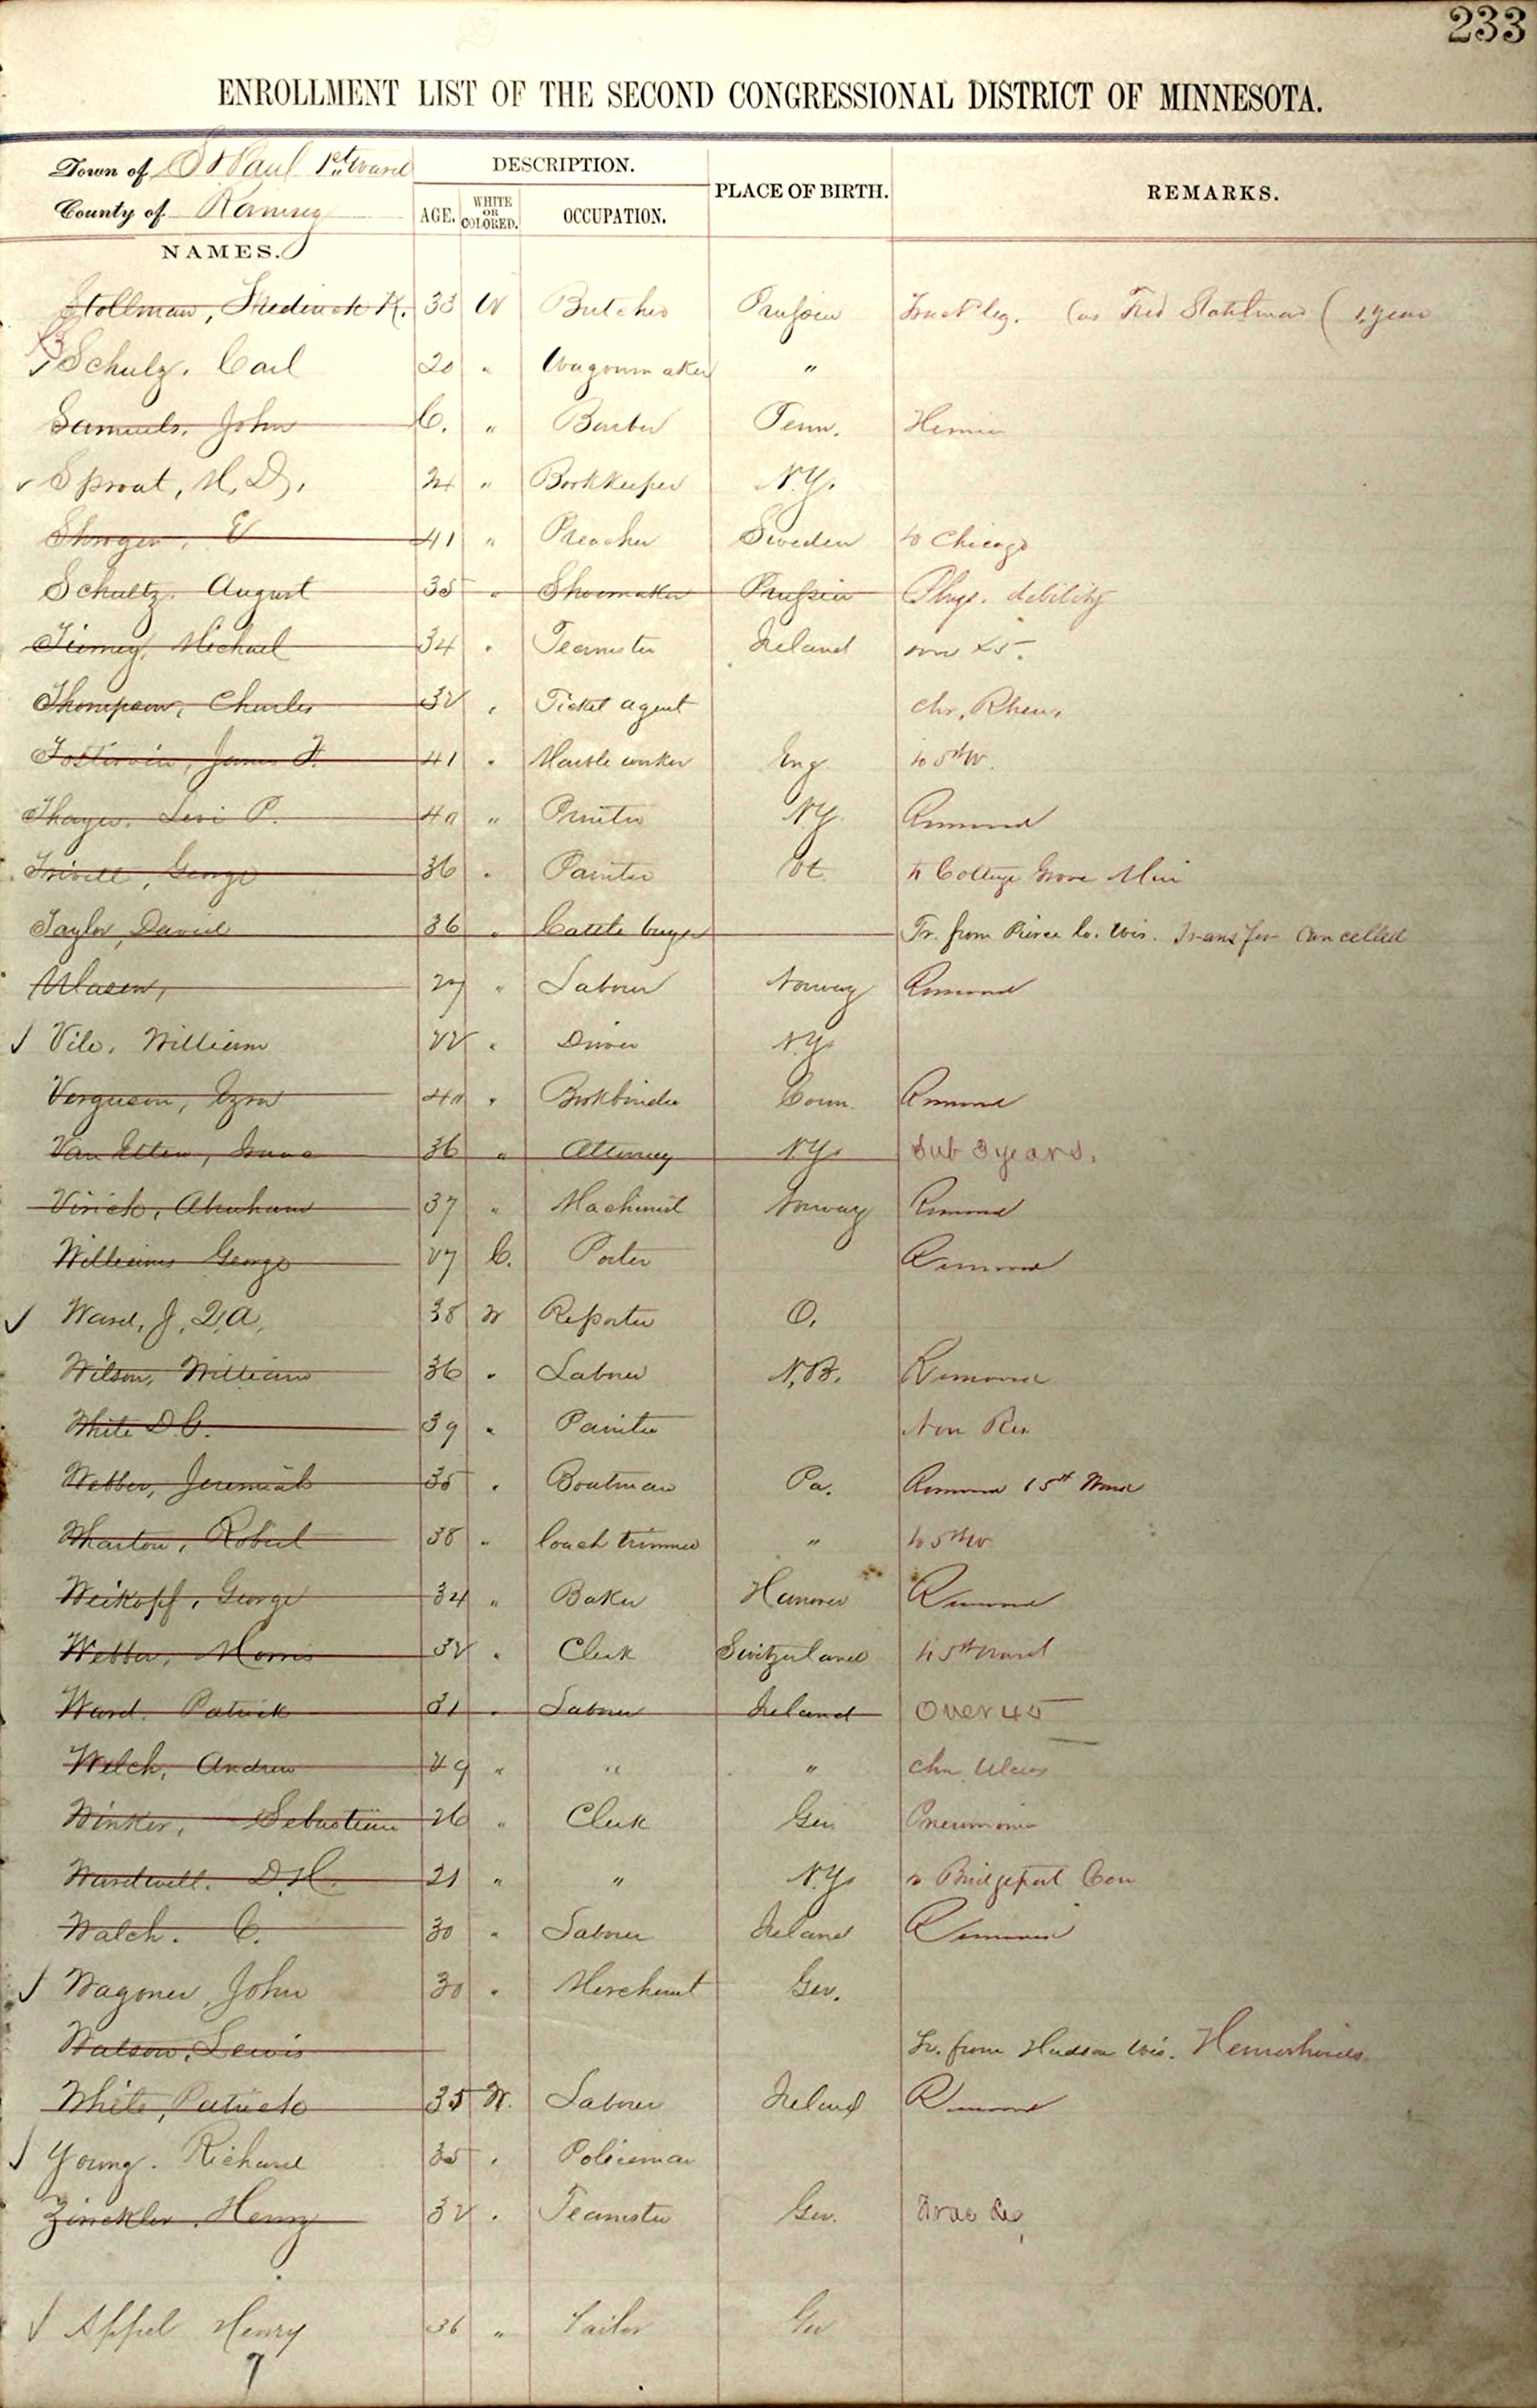 233
ENROLLMENT LIST OF THE SECOND CONGRESSIONAL DISTRICT OF MINNESOTA.
Town of St Paul 1st Ward
County of Ramsey
NAMES.
DESCRIPTION.
AGE. WHITE OR COLORED. OCCUPATION.
PLACE OF BIRTH.
REMARKS.
Stollman, Frederick K. 33 W Butcher Prussia Fract leg. (as Fred Stahlman (1 year
Schulz, Carl 20 " Wagonmaker "
Samuels, John C. " Barber Tenn. Hernia
Sprout, M. D. 24 " Bookkeeper N.Y.
E 41 " Preacher Sweden to Chicago
Schultz, August 35 " Shoemaker Prussia Phys. debility
Tierney, Michael 34 " Teamster Ireland over 45.
Thompson, Charles 32 " Ticket agent Chr. Rheu.
James F. 41 " Marble worker Eng. to 5th W.
Thayer, Levi P. 40 " Printer N.Y. Removed
George 36 " Painter Vt. to Cottage Grove Min
Taylor, David 36 " Cattle buyer Tr. from Pierce Co. Wis. Transfer Cancelled
27 " Laborer Norway Removed
Vile, William 22 " Driver N.Y.
Verguson, Ezra 40 " Bookbinder Conn. Removed
Van Etten, Isaac 36 " Attorney N.Y. Sub 3 years.
Abraham 37 " Machinist Norway Removed
Williams George 27 C. Porter Removed
Ward, J. Q. A. 38 W Reporter O.
Wilson, William 36 " Laborer N.B. Removed
White D. C. 39 " Painter Non Res.
Webber, Jeremiah 35 " Boatman Pa. Removed 5th Ward
Wharton, Robert 38 " Coach trimmer " to 5th W
Weikopf, George 34 " Baker Hanover Removed
Webber, Morris 32 " Clerk Switzerland to 5th Ward
Ward, Patrick 31 " Laborer Ireland Over 45
Welch, Andrew 29 " " " Chr. Ulcers
Winker, Sebastian 26 " Clerk Ger. Pneumonia
Wardwell, D. H. 21 " " N.Y. to Bridgeport Con
Walch, C. 30 " Laborer Ireland Removed
Wagoner, John 30 " Merchant Ger.
Watson, Lewis Tr. from Hudson Wis. Hemorrhoids
White, Patrick 35 W. Laborer Ireland Removed
Young, Richard 35 " Policeman
Zinckler, Henry 32 " Teamster Ger.
Appel Henry 36 " Tailor Ger
7